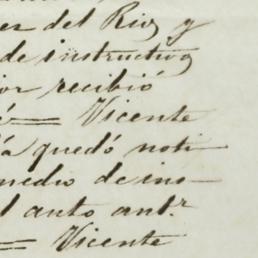 er del Rio, y
de instructivo
or recibió
é== Vicente
ía quedó noti-
medio de ins-
l auto ant.r
== Vicente